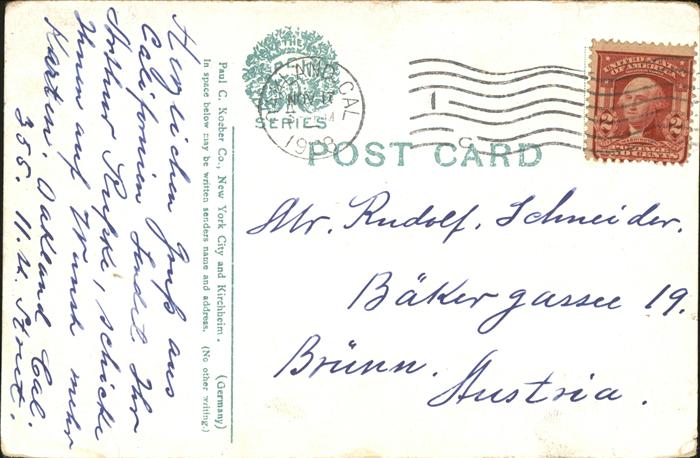 Herzlichen Gruß aus
Californien sendet Ihr
Arthur
schicke
Ihnen auf Wunsch mehr
Karten. Oakland Cal.
355. 11. th. Street.
Paul C. Koeber Co., New York City and Kirchheim, (Germany)
In space below may be written senders name and address. (No other writing.)
SERIES
CAL
NOV 17
190
1
C
POST CARD
UNITED STATES
OF AMERICA
2 2
Mr. Rudolf. Schneider.
Bäkergassee 19.
Brünn.
Austria.